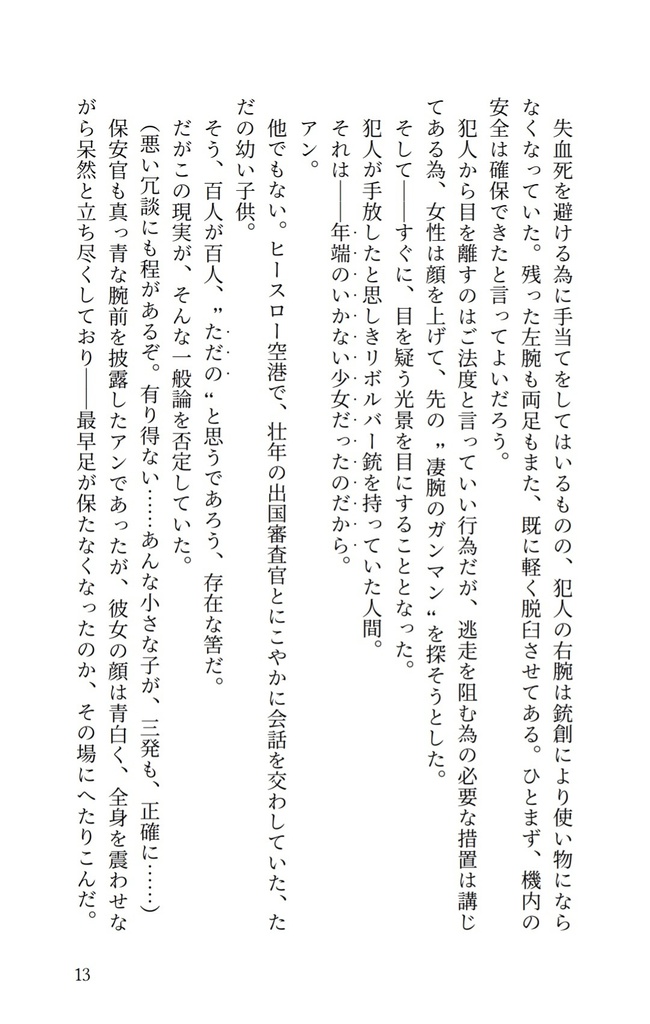 失血死を避ける為に手当てをしてはいるものの、犯人の右腕は銃創により使い物になら
なくなっていた。残った左腕も両足もまた、既に軽く脱臼させてある。ひとまず、機内の
安全は確保できたと言ってよいだろう。
　犯人から目を離すのはご法度と言っていい行為だが、逃走を阻む為の必要な措置は講じ
てある為、女性は顔を上げて、先の〞凄腕のガンマン〝を探そうとした。
　そして――すぐに、目を疑う光景を目にすることとなった。
　犯人が手放したと思しきリボルバー銃を持っていた人間。
　それは――年端のいかない少女だったのだから。
　アン。
　他でもない。ヒースロー空港で、壮年の出国審査官とにこやかに会話を交わしていた、た
だの幼い子供。
　そう、百人が百人、〞ただの〝と思うであろう、存在な筈だ。
　だがこの現実が、そんな一般論を否定していた。
（悪い冗談にも程があるぞ。有り得ない……あんな小さな子が、三発も、正確に……）
　保安官も真っ青な腕前を披露したアンであったが、彼女の顔は青白く、全身を震わせな
がら呆然と立ち尽くしており――最早足が保たなくなったのか、その場にへたりこんだ。
13